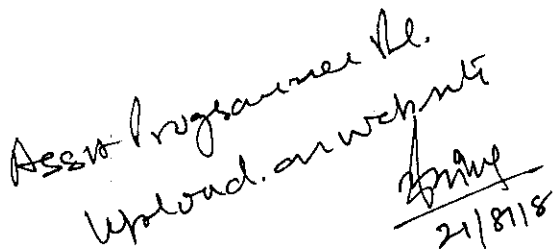 Asstt Programmer Pl.
Upload on website
21/8/18